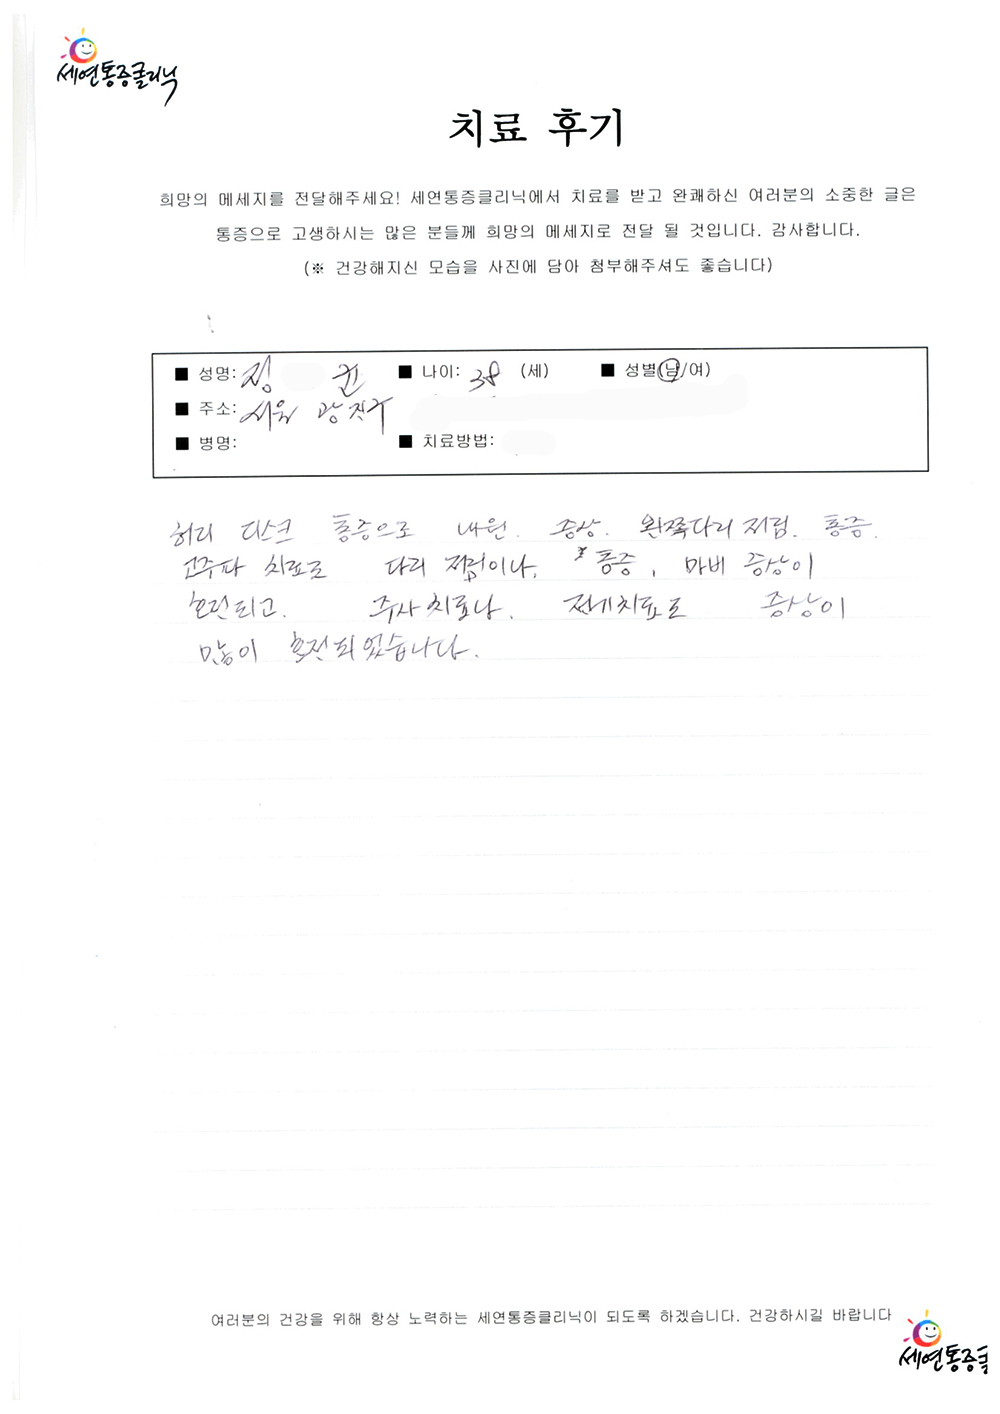 세연통증클리닉
치료 후기
희망의 메세지를 전달해주세요! 세연통증클리닉에서 치료를 받고 완쾌하신 여러분의 소중한 글은
통증으로 고생하시는 많은 분들께 희망의 메세지로 전달 될 것입니다. 감사합니다.
(※ 건강해지신 모습을 사진에 담아 첨부해주셔도 좋습니다)
■ 성명: 정 균 ■ 나이: 38 (세) ■ 성별(남/여)
■ 주소: 서울 광진구
■ 병명: ■ 치료방법:
허리 디스크 통증으로 내원. 증상. 왼쪽다리 저림. 통증.
고주파 치료로 다리 저림이나, 통증, 마비 증상이
호전되고. 주사치료나. 전기치료로 증상이
많이 호전되었습니다.
여러분의 건강을 위해 항상 노력하는 세연통증클리닉이 되도록 하겠습니다. 건강하시길 바랍니다
세연통증클